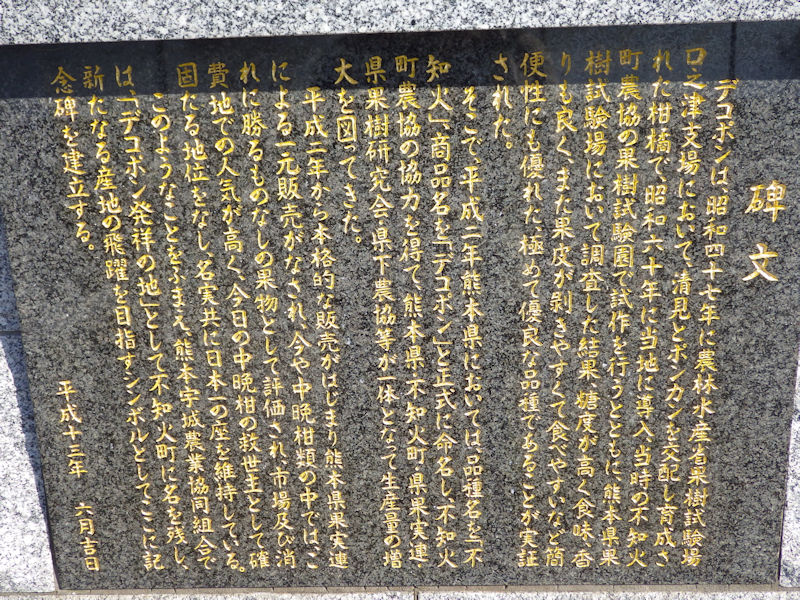 碑文
デコポンは、昭和四十七年に農林水産省果樹試験場
口之津支場において、清見とポンカンを交配し育成さ
れた柑橘で昭和六十年に当地に導入、当時の不知火
町農協の果樹試験園で試作を行うとともに、熊本県果
樹試験場において調査した結果、糖度が高く食味・香
りも良く、また果皮が剥きやすくて食べやすいなど簡
便性にも優れた、極めて優良な品種であることが実証
された。
そこで、平成二年熊本県においては、品種名を「不
知火」、商品名を「デコポン」と正式に命名し、不知火
町農協の協力を得て、熊本県・不知火町・県果実連・
県果樹研究会・県下農協等が一体となって生産量の増
大を図ってきた。
平成二年から本格的な販売がはじまり熊本県果実連
による一元販売がなされ、今や中晩柑類の中では、こ
れに勝るものなしの果物として評価され、市場及び消
費地での人気が高く、今日の中晩柑の救世主として確
固たる地位をなし、名実共に日本一の座を維持している。
このようなことをふまえ、熊本宇城農業協同組合で
は、「デコポン発祥の地」として不知火町に名を残し、
新たなる産地の飛躍を目指すシンボルとしてここに記
念碑を建立する。
平成十三年 六月吉日